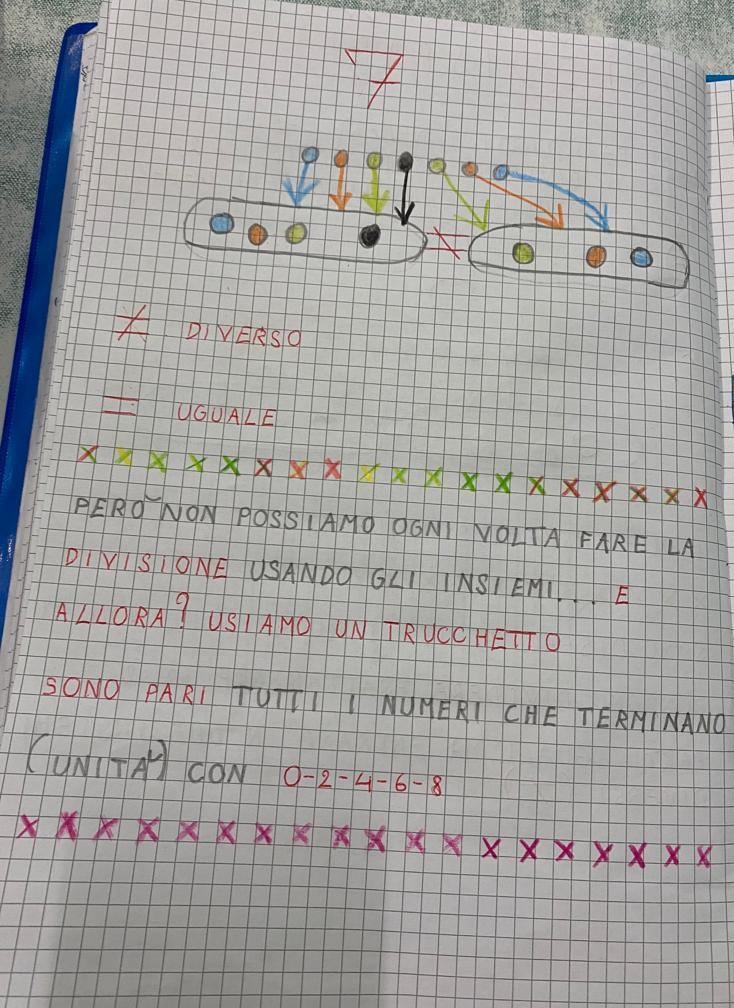 7
≠
≠ DIVERSO
= UGUALE
X X X X X X X X X X X X X X X X X X X
PERÒ NON POSSIAMO OGNI VOLTA FARE LA
DIVISIONE USANDO GLI INSIEMI... E
ALLORA? USIAMO UN TRUCCHETTO
SONO PARI TUTTI I NUMERI CHE TERMINANO
(UNITÀ) CON 0-2-4-6-8
X X X X X X X X X X X X X X X X X X X